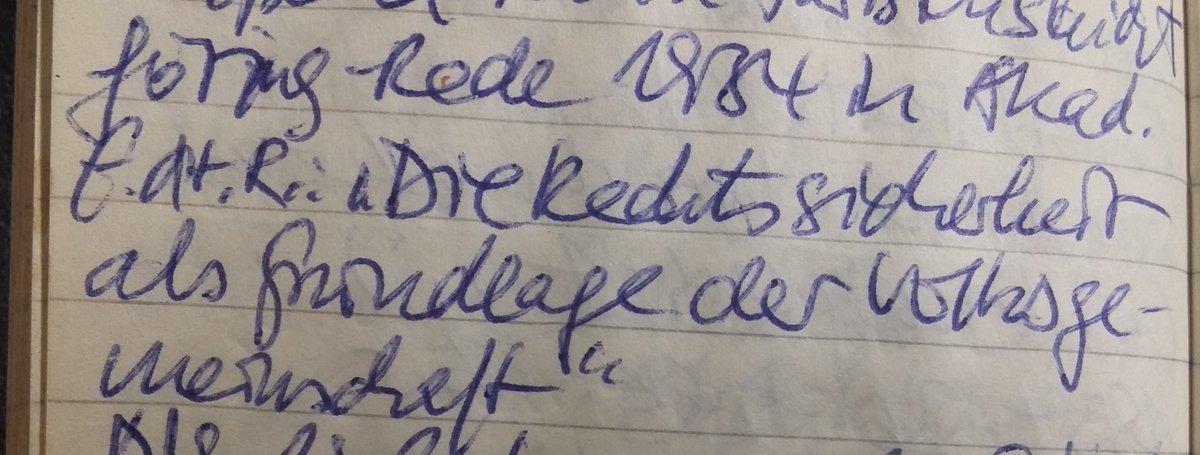 Göring-Rede 1934 in Akad.
f. dt. R.: „Die Rechtssicherheit
als Grundlage der Volksge-
meinschaft"